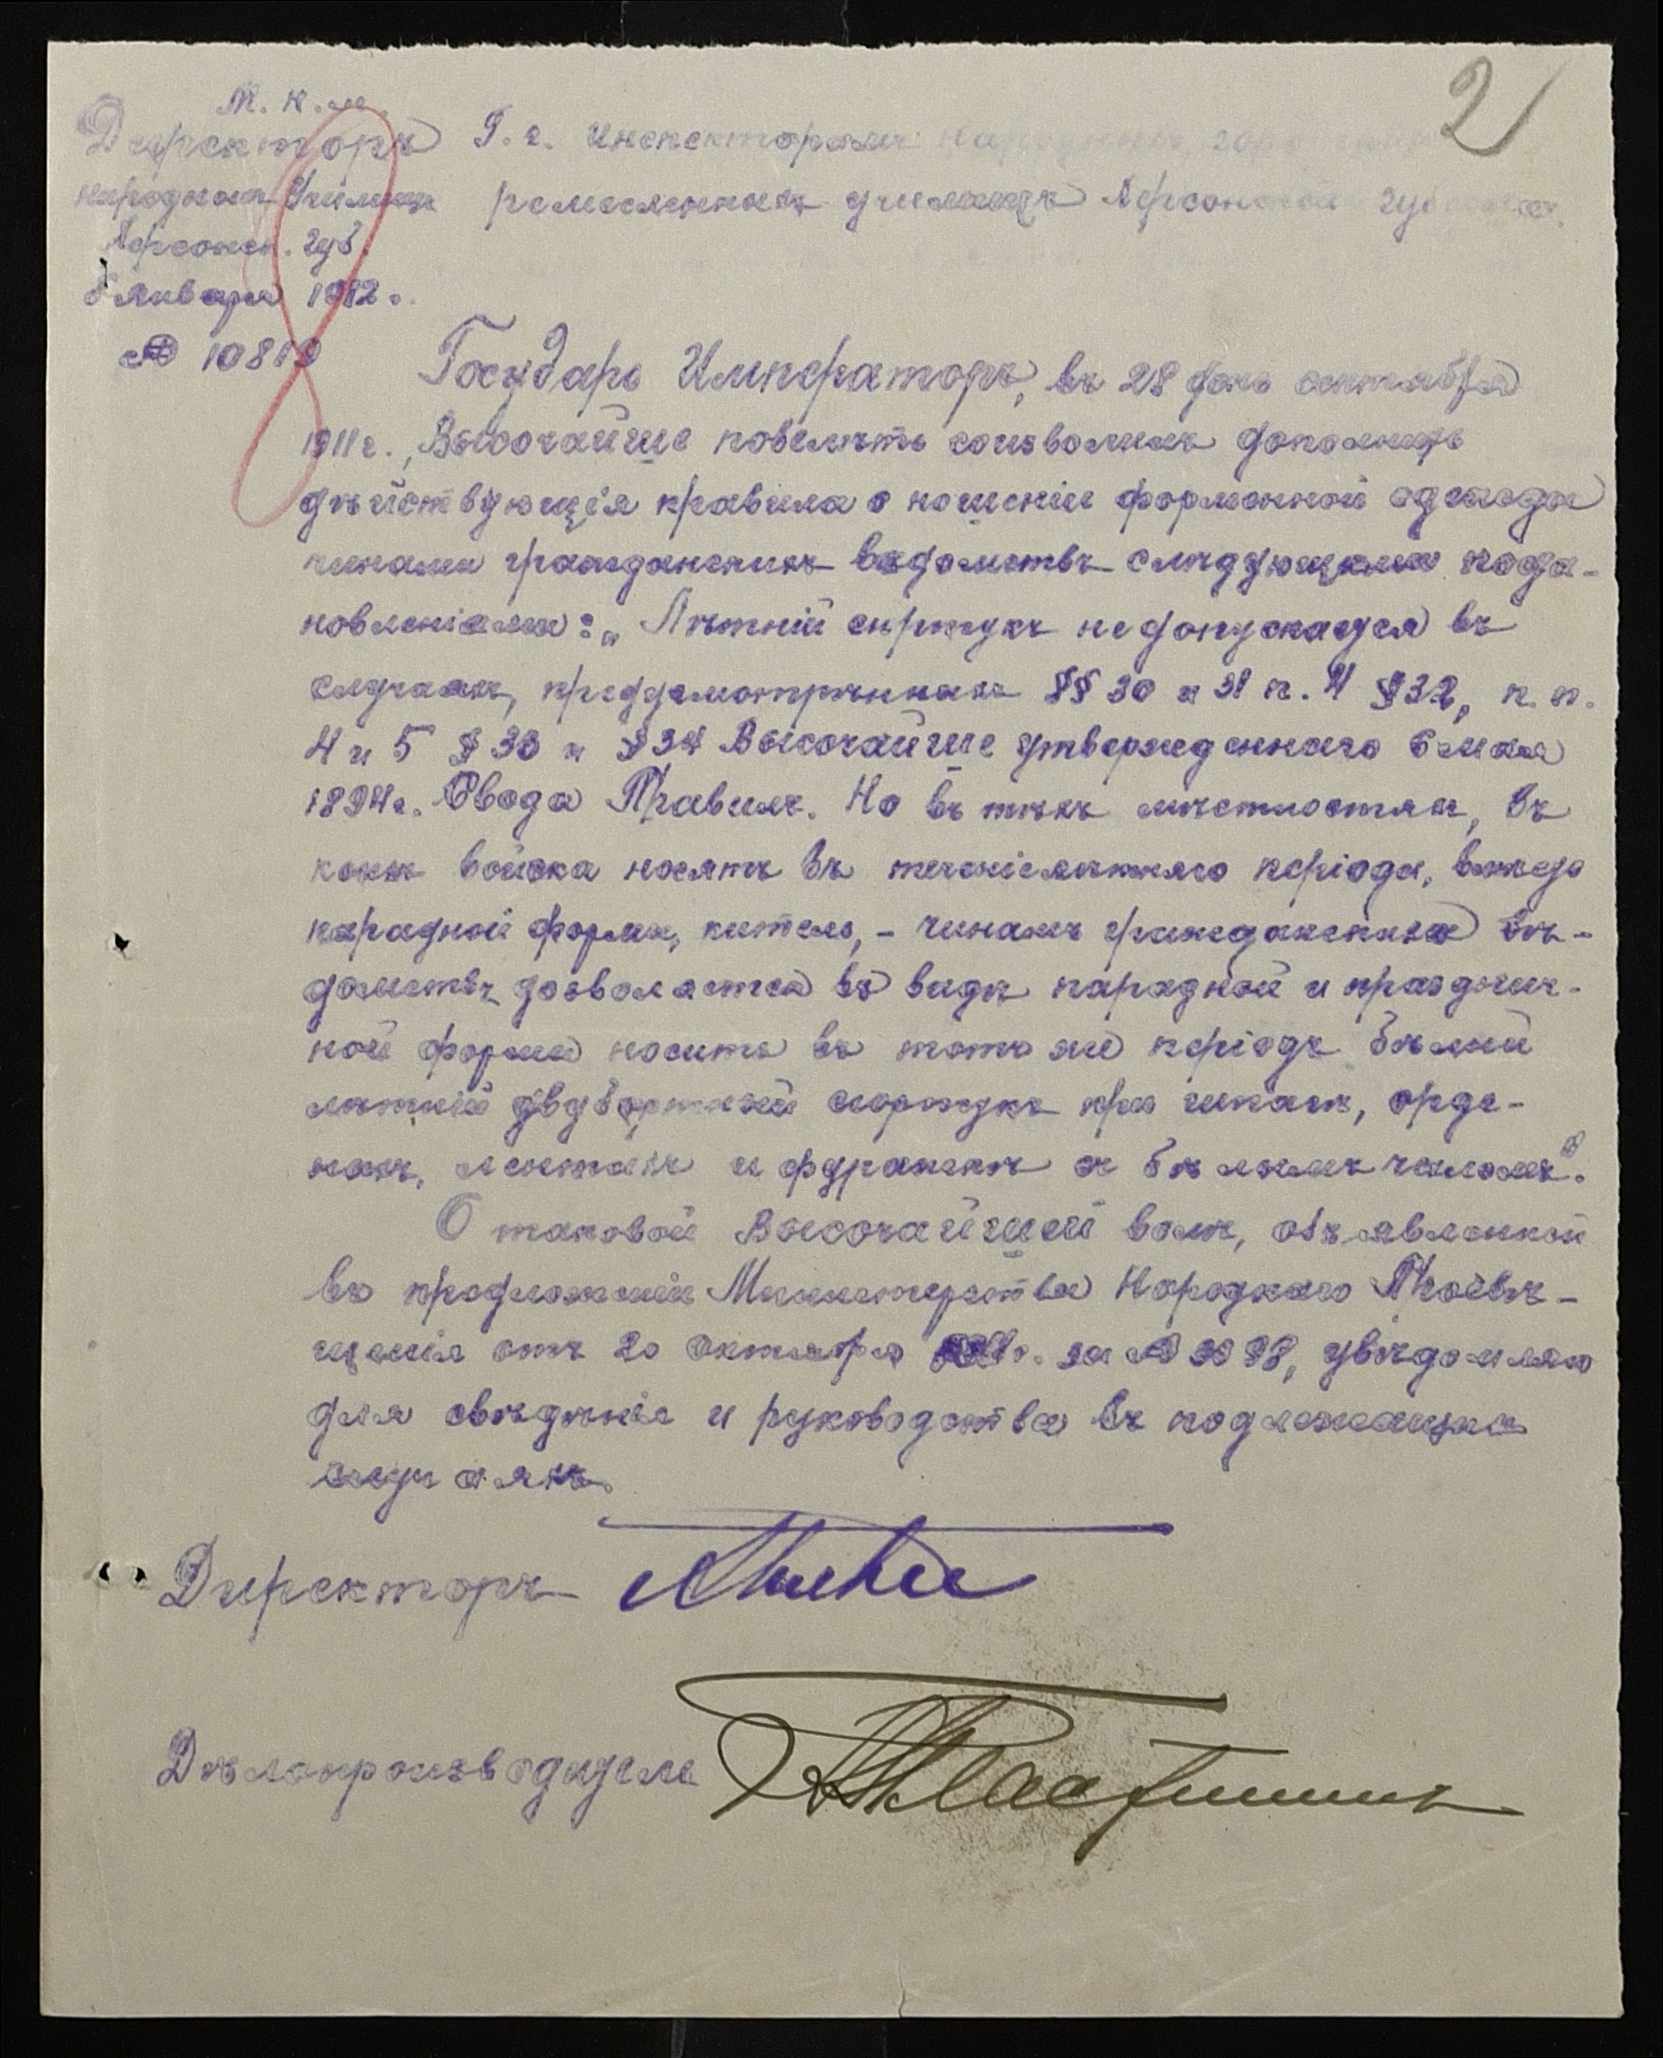 2
М. Н. П.
Директоръ
народныхъ Училищъ
Херсонск. губ.
5 Января 1912 г.
№ 10819
Г. г. Инспекторамъ народныхъ
ремесленныхъ училищъ Херсонской губерніи.
Государь Императоръ, въ 28 день сентября
1911 г., Высочайше повелѣть соизволилъ дополнить
дѣйствующія правила о ношеніи форменной одежды
чинами гражданскихъ вѣдомствъ слѣдующими поста-
новленіями: „Лѣтній сюртукъ не допускается въ
случаяхъ, предусмотрѣнныхъ §§ 30 и 31 п. 4 § 32, п. п.
4 и 5 § 33 и § 34 Высочайше утвержденнаго 6 мая
1894 г. Свода Правилъ. Но въ тѣхъ мѣстностяхъ, въ
коихъ войска носятъ въ теченіе лѣтняго періода, вмѣсто
парадной формы, кителя, - чинамъ гражданскихъ вѣ-
домствъ дозволяется въ видѣ парадной и празднич-
ной формы носить въ тотъ же періодъ бѣлый
лѣтній двубортный сюртукъ при шпагѣ, орде-
нахъ, лентахъ и фуражкѣ съ бѣлымъ чехломъ“.
О таковой Высочайшей волѣ, объявленной
въ предложеніи Министерства Народнаго Просвѣ-
щенія отъ 20 октября за № 3298, увѣдомляю
для свѣдѣнія и руководства въ подлежащихъ
случаяхъ.
Директоръ
Дѣлопроизводитель